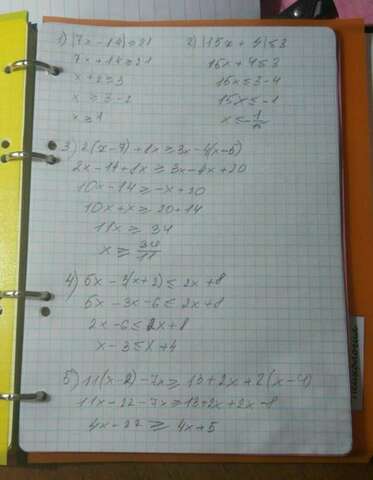 1) |7x - 14| ≥ 21
7x + 14 ≥ 21
x + 2 ≥ 3
x ≥ 3 - 2
x ≥ 1
2) |15x + 4| ≤ 3
15x + 4 ≤ 3
15x ≤ 3 - 4
15x ≤ -1
3) 2(x - 7) + 8x ≥ 3x - 4(x - 5)
2x - 14 + 8x ≥ 3x - 4x + 20
10x - 14 ≥ -x + 20
10x + x ≥ 20 + 14
11x ≥ 34
x ≥ 34/11
4) 5x - 3(x + 2) ≤ 2x + 8
5x - 3x - 6 ≤ 2x + 8
2x - 6 ≤ 2x + 8
x - 3 ≤ x + 4
5) 11(x - 2) - 7x ≥ 13 + 2x + 2(x - 4)
11x - 22 - 7x ≥ 13 + 2x + 2x - 8
4x - 22 ≥ 4x + 5